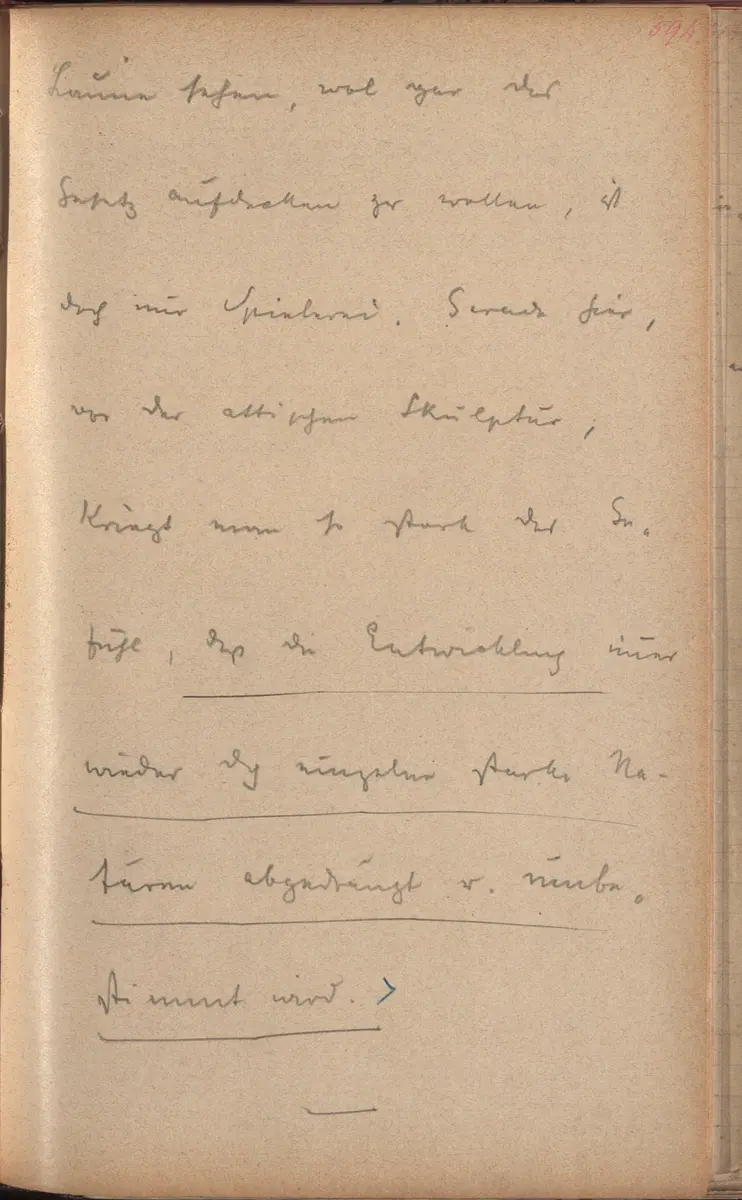 594.
Laune sehen, wol gar das
Gesetz aufdecken zu wollen, ist
doch nur Spielerei. Gerade hier,
vor der attischen Skulptur,
kriegt man so stark das Ge-
fühl, daß die Entwicklung im̅er
wieder dch einzelne starke Na-
turen abgedrängt u. umbe-
stimmt wird. >